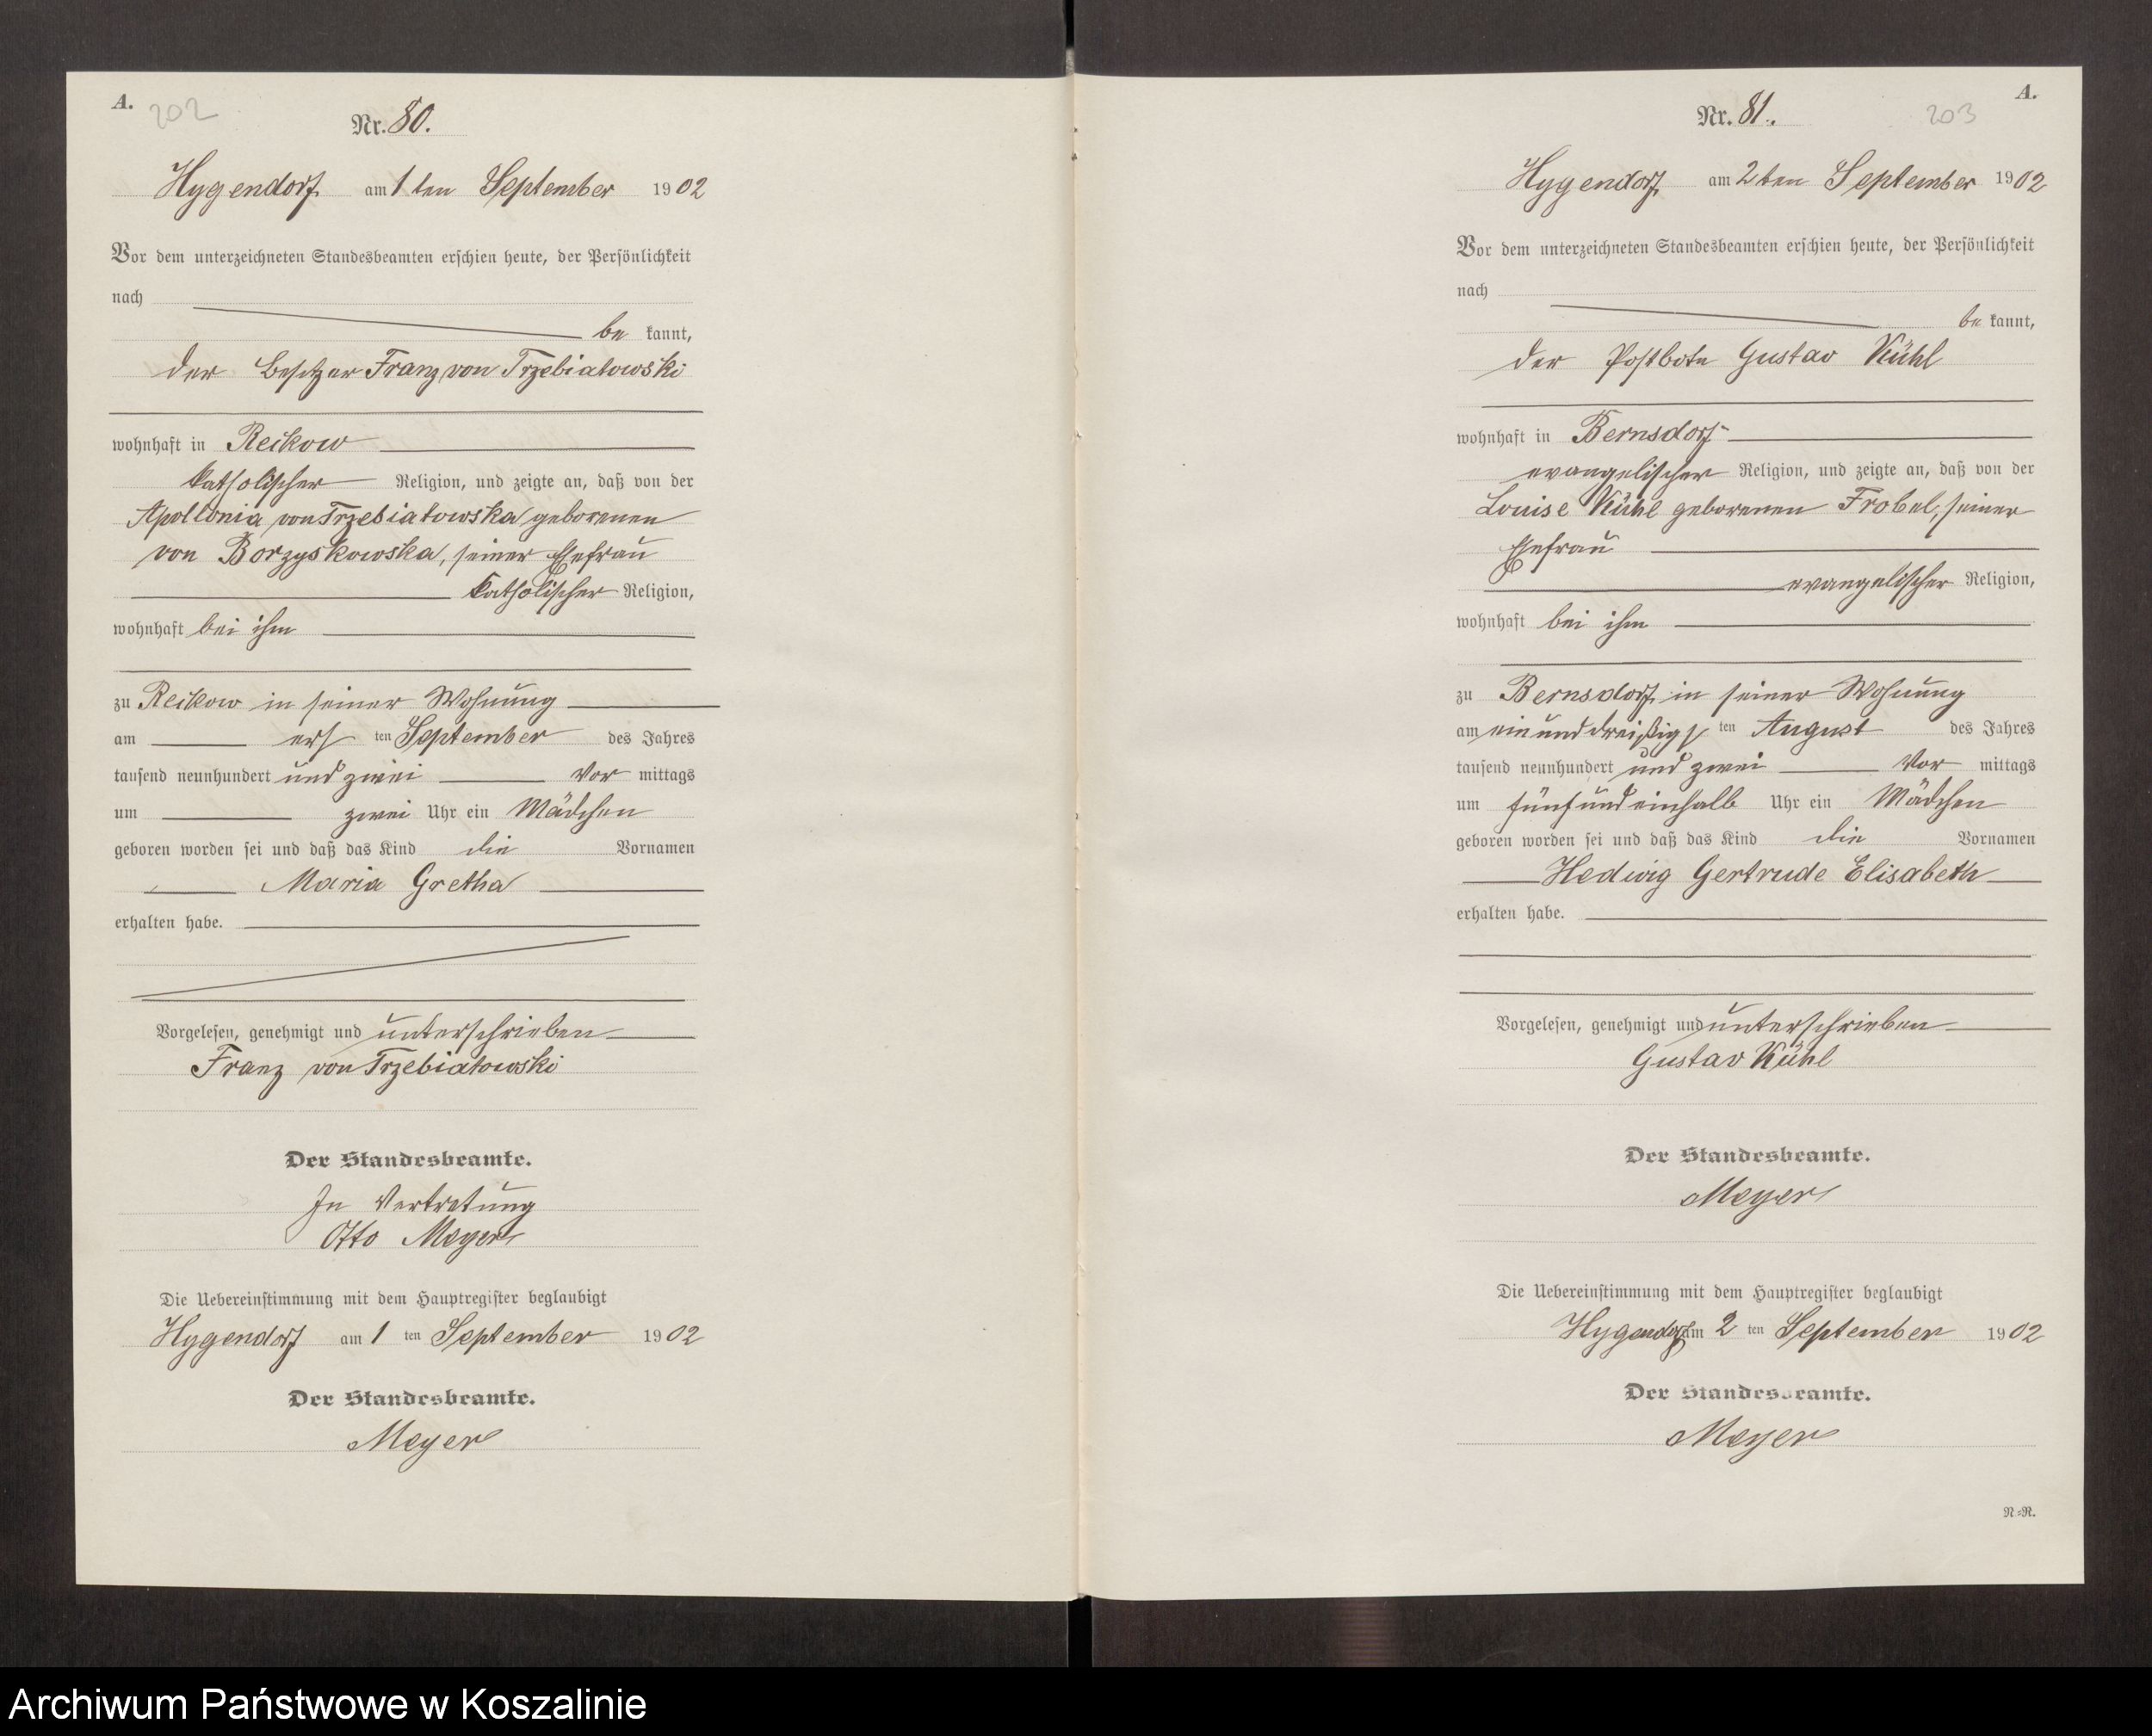 A. 202
Nr. 80.
Hygendorf am 1ten September 1902
Vor dem unterzeichneten Standesbeamten erschien heute, der Persönlichkeit
nach
be kannt,
der Besitzer Franz von Trzebiatowski
wohnhaft in Reikow
katholischer Religion, und zeigte an, daß von der
Apollonia von Trzebiatowska geborenen
von Borzyskowska, seiner Ehefrau
katholischer Religion,
wohnhaft bei ihm
zu Reikow in seiner Wohnung
am ersten September des Jahres
tausend neunhundert und zwei Vor mittags
um zwei Uhr ein Mädchen
geboren worden sei und daß das Kind die Vornamen
Maria Gretha
erhalten habe.
Vorgelesen, genehmigt und unterschrieben
Franz von Trzebiatowski
Der Standesbeamte.
In Vertretung
Otto Meyer
Die Uebereinstimmung mit dem Hauptregister beglaubigt
Hygendorf am 1 ten September 1902
Der Standesbeamte.
Meyer
A.
Nr. 81. 203
Hygendorf am 2ten September 1902
Vor dem unterzeichneten Standesbeamten erschien heute, der Persönlichkeit
nach
be kannt,
der Postbote Gustav Kühl
wohnhaft in Bernsdorf
evangelischer Religion, und zeigte an, daß von der
Louise Kühl geborenen Frobel, seiner
Ehefrau
evangelischer Religion,
wohnhaft bei ihm
zu Bernsdorf in seiner Wohnung
am einunddreißigsten August des Jahres
tausend neunhundert und zwei Vor mittags
um fünf und einhalb Uhr ein Mädchen
geboren worden sei und daß das Kind die Vornamen
Hedwig Gertrude Elisabeth
erhalten habe.
Vorgelesen, genehmigt und unterschrieben
Gustav Kühl
Der Standesbeamte.
Meyer
Die Uebereinstimmung mit dem Hauptregister beglaubigt
Hygendorf am 2 ten September 1902
Der Standesbeamte.
Meyer
N=R.
Archiwum Państwowe w Koszalinie